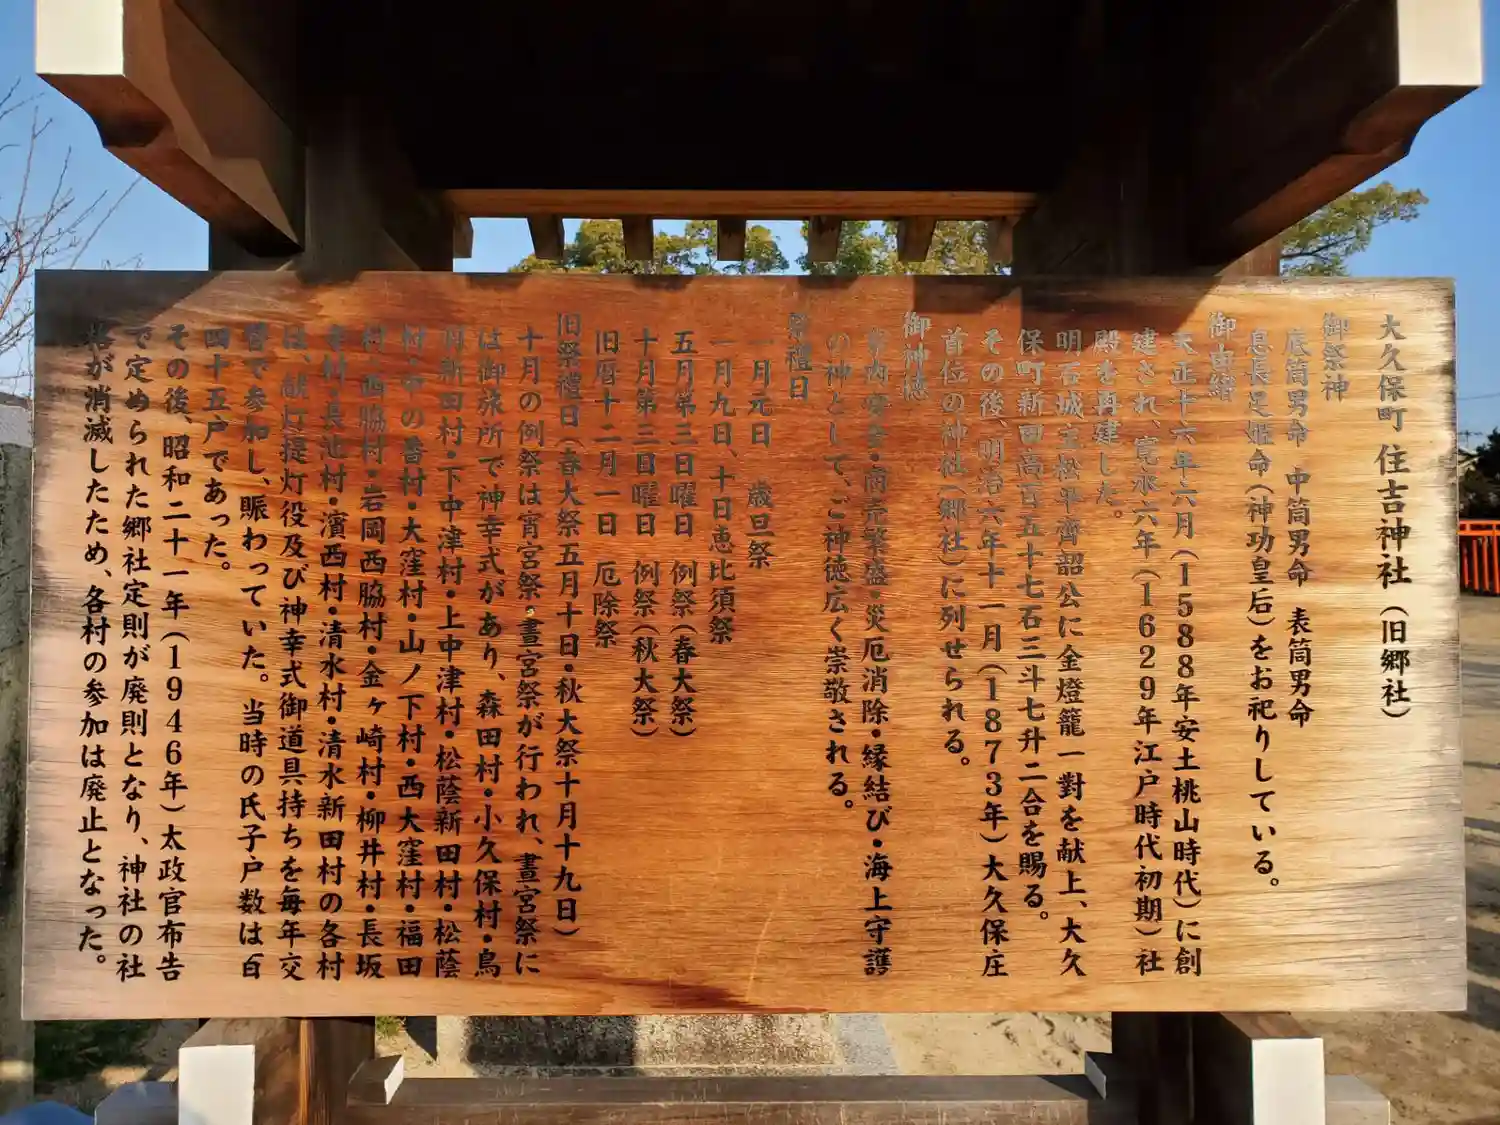 大久保町 住吉神社（旧郷社）
御祭神
底筒男命 中筒男命 表筒男命
息長足姫命（神功皇后）をお祀りしている。
御由緒
天正十六年六月（1588年安土桃山時代）に創
建され、寛永六年（1629年江戸時代初期）社
殿を再建した。
明石城主松平齊韶公に金燈籠一對を献上、大久
保町新田高百五十七石三斗七升二合を賜る。
その後、明治六年十一月（1873年）大久保庄
首位の神社（郷社）に列せられる。
御神徳
家内安全・商売繁盛・災厄消除・縁結び・海上守護
の神として、ご神徳広く崇敬される。
祭禮日
一月元日 歳旦祭
一月九日、十日恵比須祭
五月第三日曜日 例祭（春大祭）
十月第三日曜日 例祭（秋大祭）
旧暦十二月一日 厄除祭
旧祭禮日（春大祭五月十日・秋大祭十月十九日）
十月の例祭は宵宮祭・晝宮祭が行われ、晝宮祭に
は御旅所で神幸式があり、森田村・小久保村・鳥
羽新田村・下中津村・上中津村・松蔭新田村・松蔭
村・中の番村・大窪村・山ノ下村・西大窪村・福田
村・西脇村・岩岡西脇村・金ヶ崎村・柳井村・長坂
寺村・長池村・濱西村・清水村・清水新田村の各村
は、献灯提灯役及び神幸式御道具持ちを毎年交
替で参加し、賑わっていた。当時の氏子戸数は百
四十五戸であった。
その後、昭和二十一年（1946年）太政官布告
で定められた郷社定則が廃則となり、神社の社
格が消滅したため、各村の参加は廃止となった。